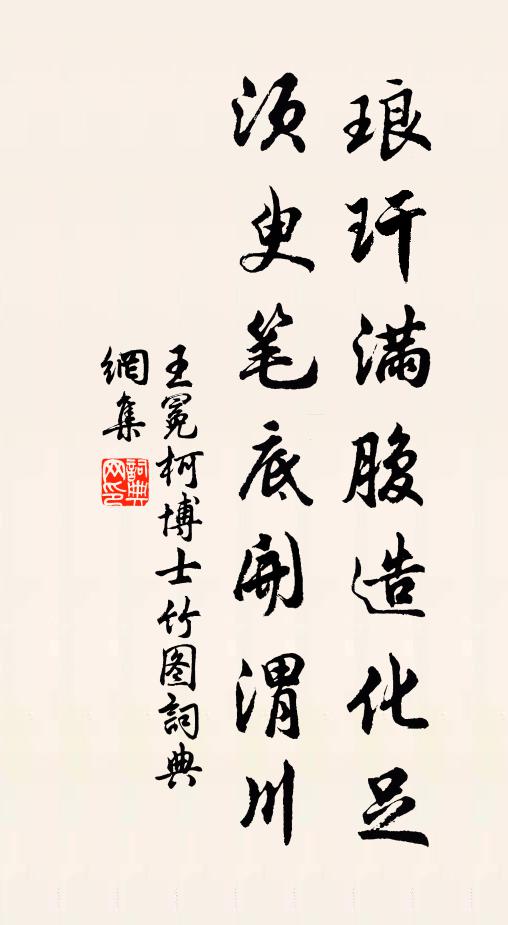 琅玕滿腹造化足
須臾笔底開渭川
王冕柯博士竹图詞典
網集
詞典
网印